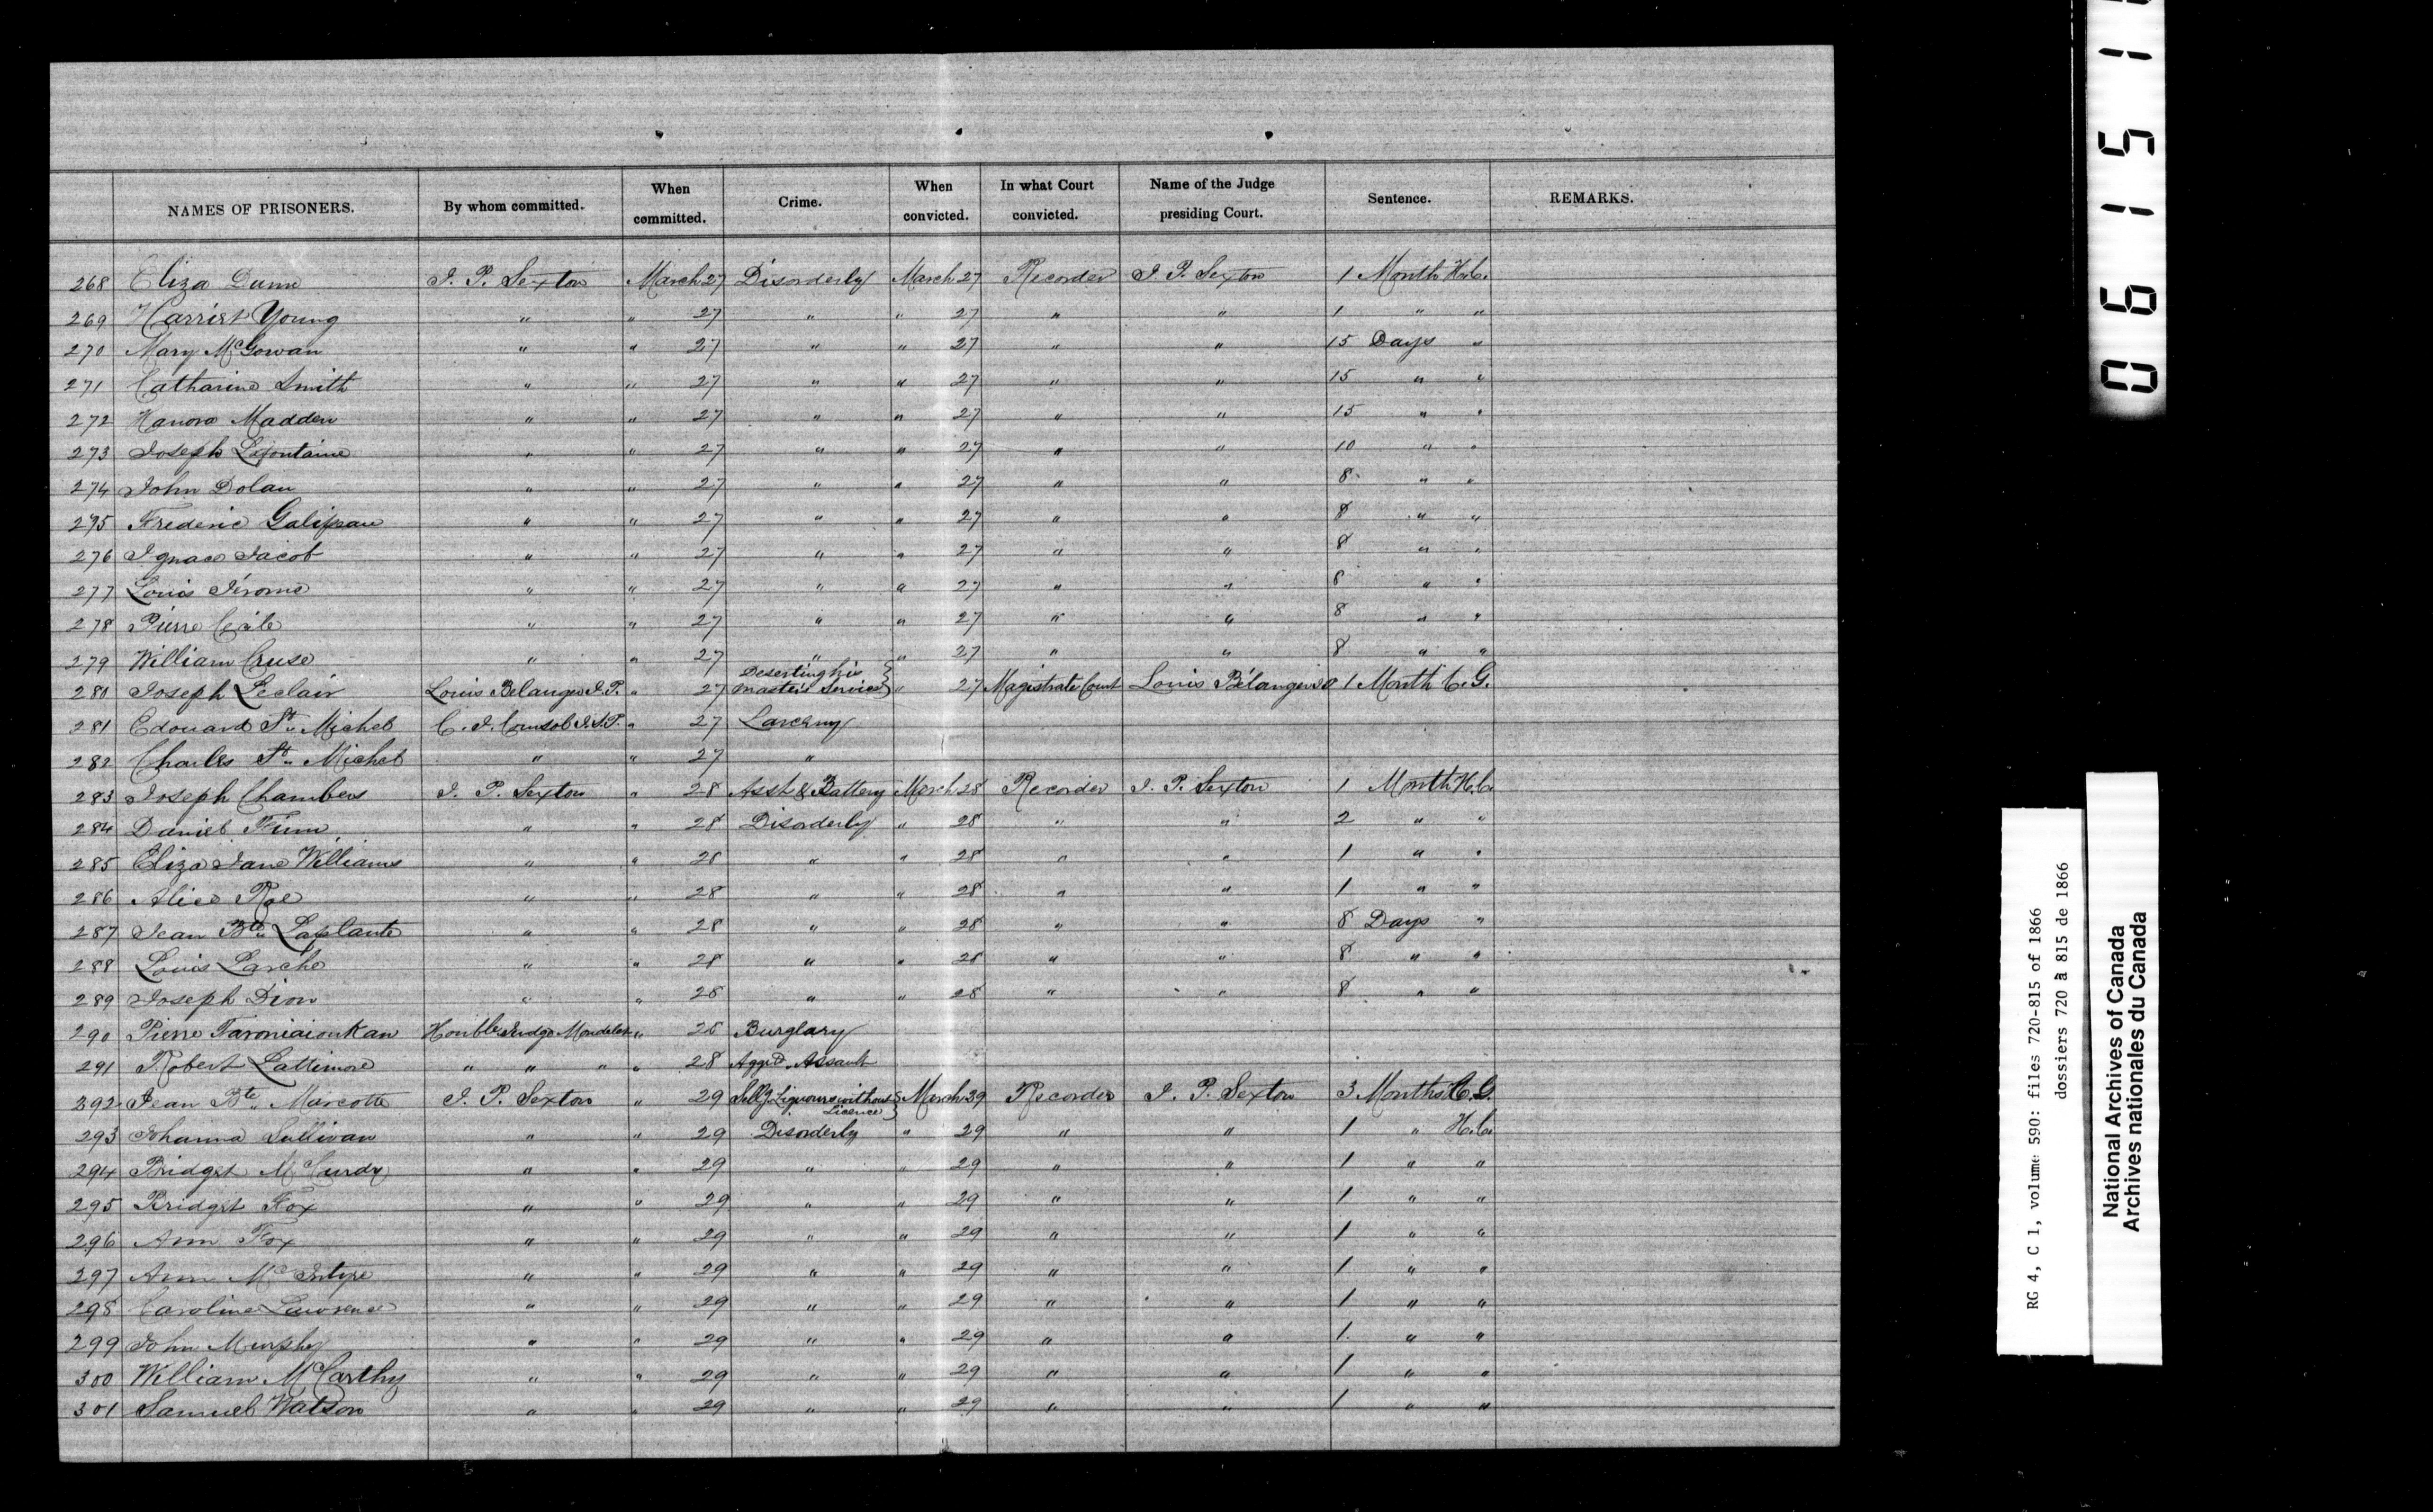 NAMES OF PRISONERS. By whom committed. When committed. Crime. When convicted. In what Court convicted. Name of the Judge presiding Court. Sentence. REMARKS.
268 Eliza Dunn J. P. Sexton March 27 Disorderly March 27 Recorder J. P. Sexton 1 Month H.L.
269 Harriet Young " " 27 " " 27 " " 1 " "
270 Mary McGowan " " 27 " " 27 " " 15 Days "
271 Catharine Smith " " 27 " " 27 " " 15 " "
272 Hanora Madden " " 27 " " 27 " " 15 " "
273 Joseph Lafontaine " " 27 " " 27 " " 10 " "
274 John Dolan " " 27 " " 27 " " 8 " "
275 Frederic Galipeau " " 27 " " 27 " " 8 " "
276 Ignace Jacob " " 27 " " 27 " " 8 " "
277 Louis Jérome " " 27 " " 27 " " 8 " "
278 Pierre " " 27 " " 27 " " 8 " "
279 William Cruse " " 27 " " 27 " " 8 " "
280 Joseph Leclair Louis Belanger J.P. " 27 Deserting his master's service } " 27 Magistrate Court Louis Bélanger 1 Month C.G.
281 Edouard St. Michel C. J. Coursol J.S.P. " 27 Larceny
282 Charles St. Michel " " 27 "
283 Joseph Chambers J. P. Sexton " 28 Asslt & Battery March 28 Recorder J. P. Sexton 1 Month H.L.
284 Daniel Finn " " 28 Disorderly " 28 " " 2 " "
285 Eliza Jane Williams " " 28 " " 28 " " 1 " "
286 Alice Roe " " 28 " " 28 " " 1 " "
287 Jean Bte Laplante " " 28 " " 28 " " 8 Days "
288 Louis Larche " " 28 " " 28 " " 8 " "
289 Joseph Dion " " 28 " " 28 " " 8 " "
290 Pierre Taroniaionkan Honble Judge Mondelet " 28 Burglary
291 Robert Lattimore " " " " 28 Aggd. Assault
292 Jean Bte. Marcotte J. P. Sexton " 29 Sellg Liquours without Licence } March 29 Recorder J. P. Sexton 3 Months C.G.
293 Johanna Sullivan " " 29 Disorderly " 29 " " 1 " H.L.
294 Bridget McCurdy " " 29 " " 29 " " 1 " "
295 Bridget Fox " " 29 " " 29 " " 1 " "
296 Ann Fox " " 29 " " 29 " " 1 " "
297 Ann McIntyre " " 29 " " 29 " " 1 " "
298 Caroline Lawrence " " 29 " " 29 " " 1 " "
299 John Murphy " " 29 " " 29 " " 1 " "
300 William McCarthy " " 29 " " 29 " " 1 " "
301 Samuel Watson " " 29 " " 29 " " 1 " "
RG 4, C 1, volume 590: files 720-815 of 1866
dossiers 720 à 815 de 1866
National Archives of Canada
Archives nationales du Canada